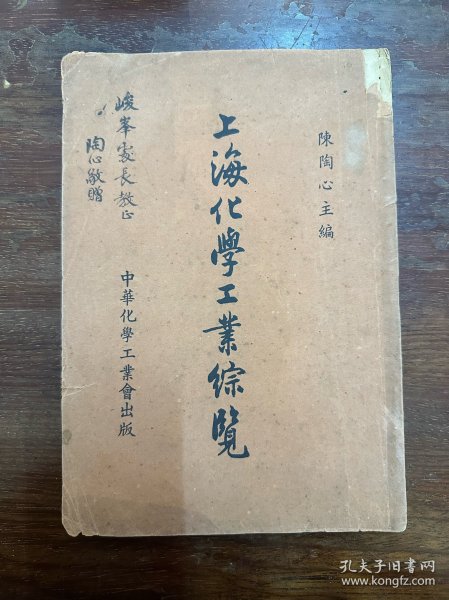 陳陶心主編
上海化學工業綜覽
中華化學工業會出版
峻峯家長教正
陶心敬贈
孔夫子旧书网
www.kongfz.com